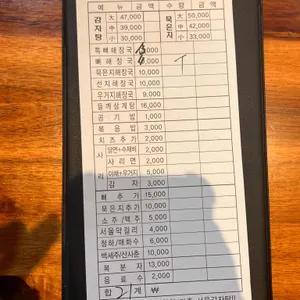 메 뉴 금 액 수 량 금 액
감자탕 大 47,000 묵은지 大 50,000
中 39,000 中 42,000
小 30,000 小 33,000
뼈해장국
묵은지해장국 10,000
선지해장국 10,000
우거지해장국 9,000
들깨삼계탕 16,000
공 기 밥 1,000
볶 음 밥 3,000
치즈추가 2,000
사리 당면+수제비 2,000
사 리 면 2,000
야채+우거지 5,000
감 자 3,000
뼈 추 가 15,000
묵은지추가 10,000
소주/맥주 5,000
서울막걸리 4,000
청하/매화수 6,000
백세주/산사춘 10,000
복 분 자 13,000
음 료 수 2,000
합 계 ₩